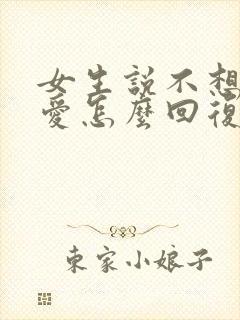 女生說不想
愛怎麼回復
東家小娘子